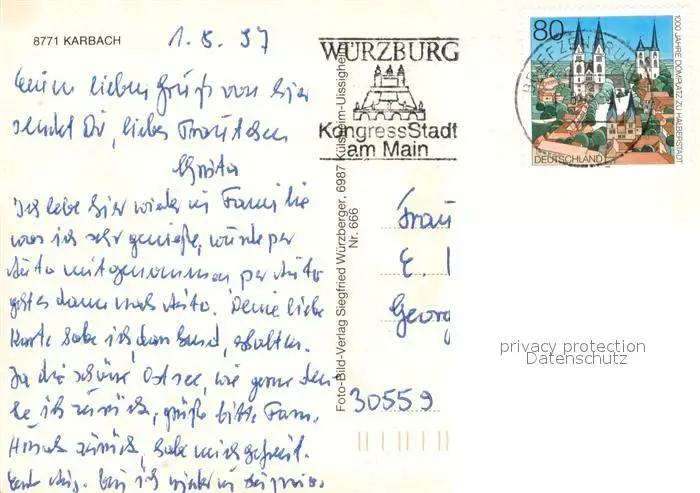 8771 KARBACH
1.8.97
lieben Gruß von hier
sendet Dir, liebes Trautchen
Ich lebe hier wieder in Familie
was ich sehr genieße, wurde per
Auto mitgenommen per Auto
geht es dann nach Deine liebe
Karte habe ich, dankend, erhalten.
Ja die schöne Ostsee, wie gerne den-
ke ich zurück, grüße bitte Fam.
zurück, habe mich gefreut.
Ende Aug. bin ich wieder in
Foto-Bild-Verlag Siegfried Würzberger, 6987 Külsheim-Uissigheim
Nr. 666
WÜRZBURG
KongressStadt
am Main
80
1000 JAHRE DOMPLATZ ZU HALBERSTADT
DEUTSCHLAND
BRIEFZENTRUM
Frau
E.
Georg
30559
privacy protection
Datenschutz